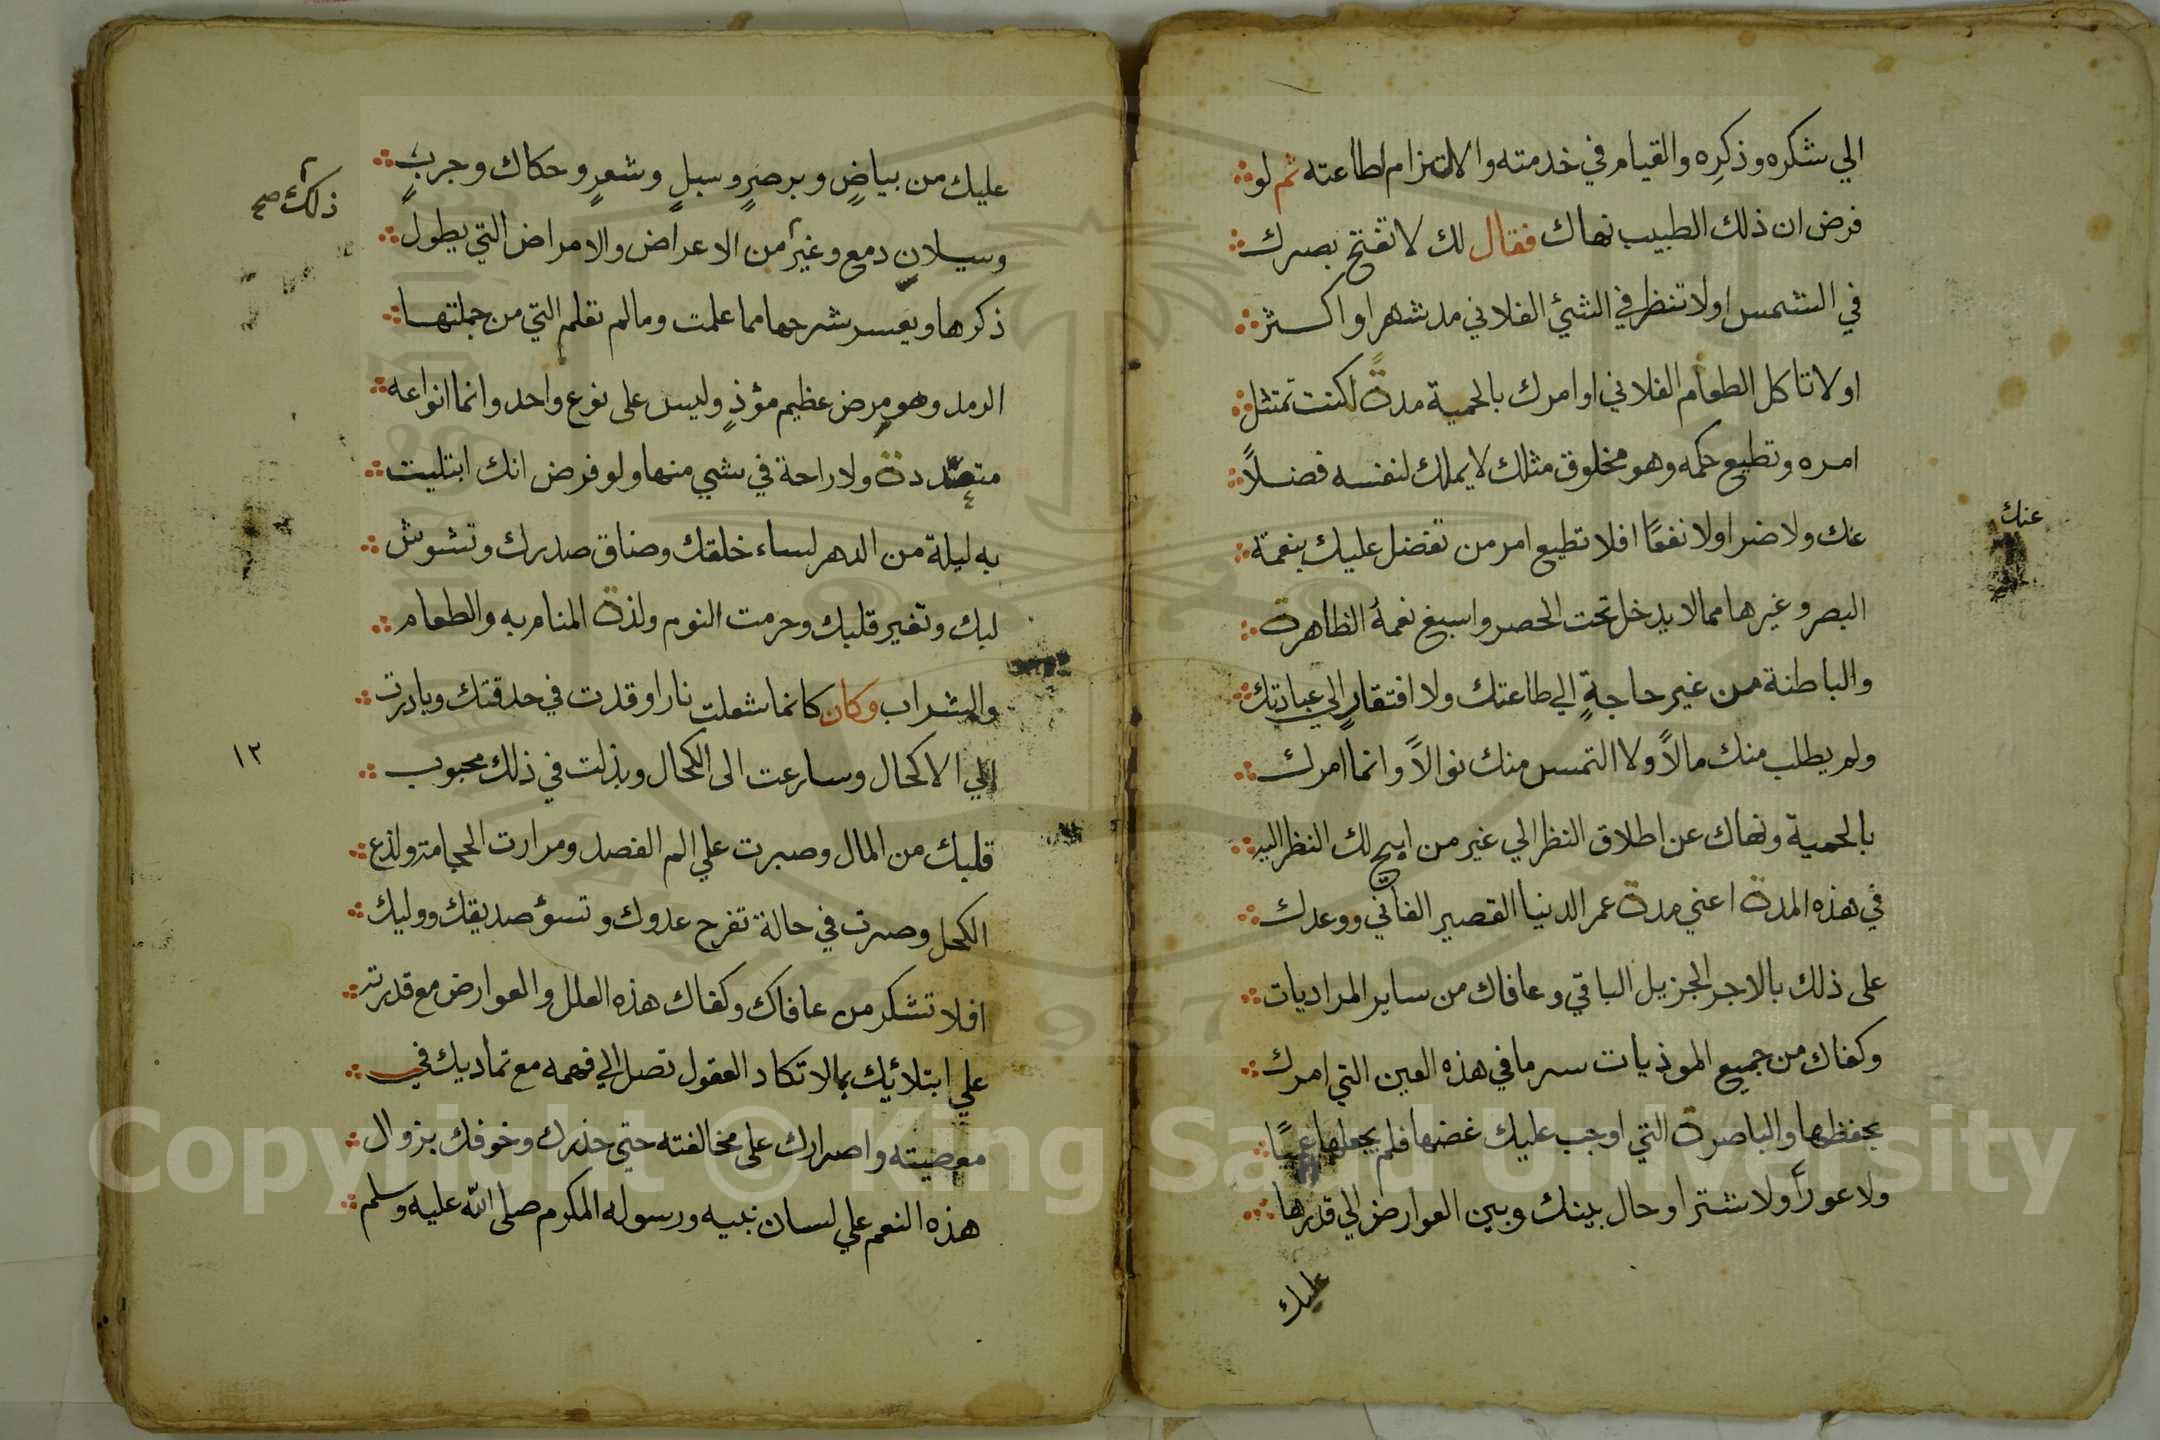 الي شكره وذكرِه والقيام في خدمته والالتزام لطاعته ثم لو
فرض ان ذلك الطبيب نهاك فقال لك لا تفتح بصرك
في الشمس او لا تنظر في الشئ الفلاني مد شهر او اكثر
او لا تاكل الطعام الفلاني او امرك بالحمية مدةً لكنت تمتثل
امره وتطيع حكمه وهو مخلوق مثلك لا يملك لنفسه فضلاً
عنك ولا ضرا ولا نفعًا افلا تطيع امر من تفضل عليك بنعمة
عنك
البصر وغيرها مما لا يدخل تحت الحصر واسبغ نعمهُ الظاهرة
والباطنة من غير حاجةٍ الي طاعتك ولا افتقارٍ الي عبادتك
ولم يطلب منك مالاً ولا التمس منك نوالاً وانما امرك
بالحمية ونهاك عن اطلاق النظر الي غير من ابيح لك النظر اليه
في هذه المدة اعني مدة عمر الدنيا القصير الفاني ووعدك
على ذلك بالاجر الجزيل الباقي وعافاك من ساير المراديات
وكفاك من جميع الموذيات سر ما في هذه العين التي امرك
بحفظها والباصرة التي اوجب عليك غضها فلم يجعلها عميًا
ولا عوراً ولا شترا وحال بينك وبين العوارض الي قدرها
عليك
عليك من بياضٍ وبرصٍ وسبلٍ وشعرٍ وحكاك وجربٍ
ذلك صح
وسيلان دمع وغير من الاعراض والامراض التي يطول
ذكرها ويعسر شرحها مما علمت وما لم تعلم التي من جملتها
الرمد وهو مرض عظيم مؤذٍ وليس على نوع واحد وانما انواعه
متعددة ولا راحة في شيي منها ولو فرض انك ابتليت
به ليلة من الدهر لساء خلقك وضاق صدرك وتشوش
لبك وتغير قلبك وحرمت النوم ولذة المنام به والطعام
والشراب وكان كانما شعلت نار اوقدت في حدقتك وبادرت
١٢
الي الاكحال وسارعت الى الكحال وبذلت في ذلك محبوب
قلبك من المال وصبرت علي الم الفصد ومرارت الحجامة ولذع
الكحل وصرت في حالة تفرح عدوك وتسؤ صديقك ووليك
افلا تشكر من عافاك وكفاك هذه العلل والعوارض مع قدرته
علي ابتلائيك بما لا تكاد العقول تصل الي فهمه مع تماديك في
معصيته واصرارك على مخالفته حتى حذرك وخوفك بزوال
هذه النعم علي لسان نبيه ورسوله المكرم صلى الله عليه وسلم
Copyright © King Saud University
1957